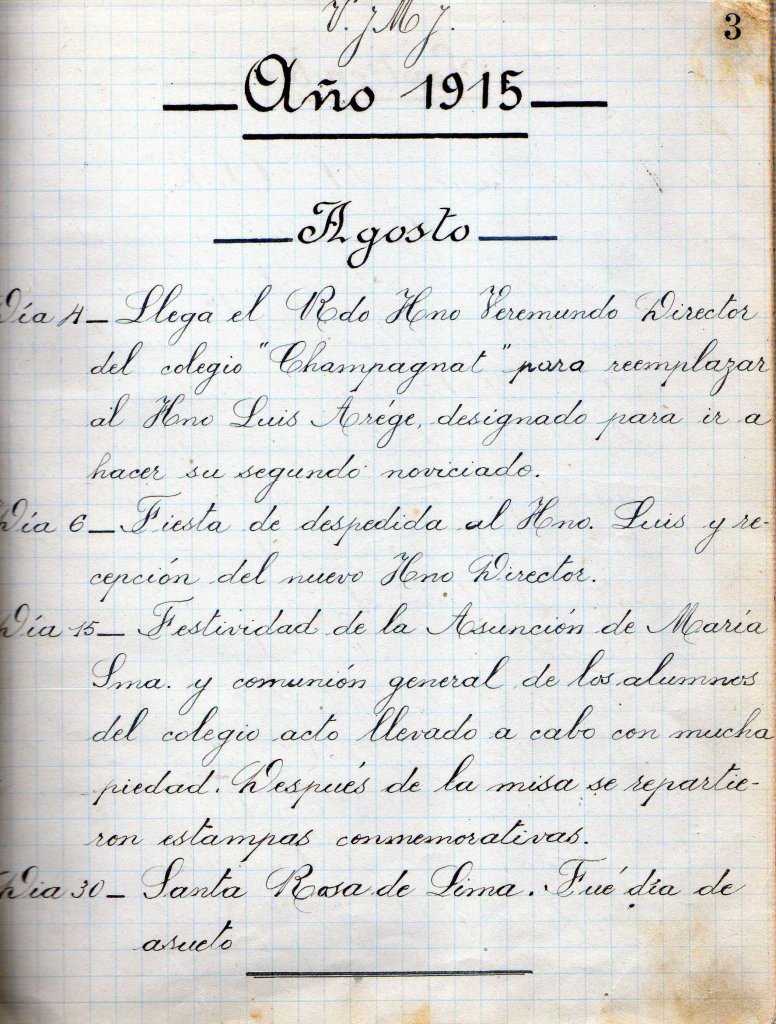 V. J. M. J.
3
Año 1915
Agosto
Día 4 – Llega el Rdo Hno Veremundo Director
del colegio "Champagnat" para reemplazar
al Hno Luis Arége, designado para ir a
hacer su segundo noviciado.
Día 6 – Fiesta de despedida al Hno. Luis y re-
cepción del nuevo Hno Director.
Día 15 – Festividad de la Asunción de María
Sma. y comunión general de los alumnos
del colegio acto llevado a cabo con mucha
piedad. Después de la misa se repartie-
ron estampas conmemorativas.
Dia 30 – Santa Rosa de Lima. Fué día de
asueto